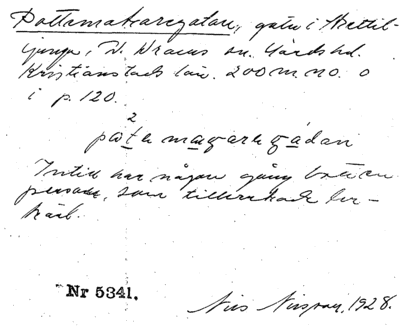 Pottamakaregatan, gata i Kettil-
junga, V. Wrams sn. Gärds hd.
Kristianstads län. 200 m. no. o
i p. 120.
2
påta magaragádan
Intill har någon gång bott en
person, som tillverkade ler-
kärl.
Nr 5341.
Nils Nilsson, 1928.